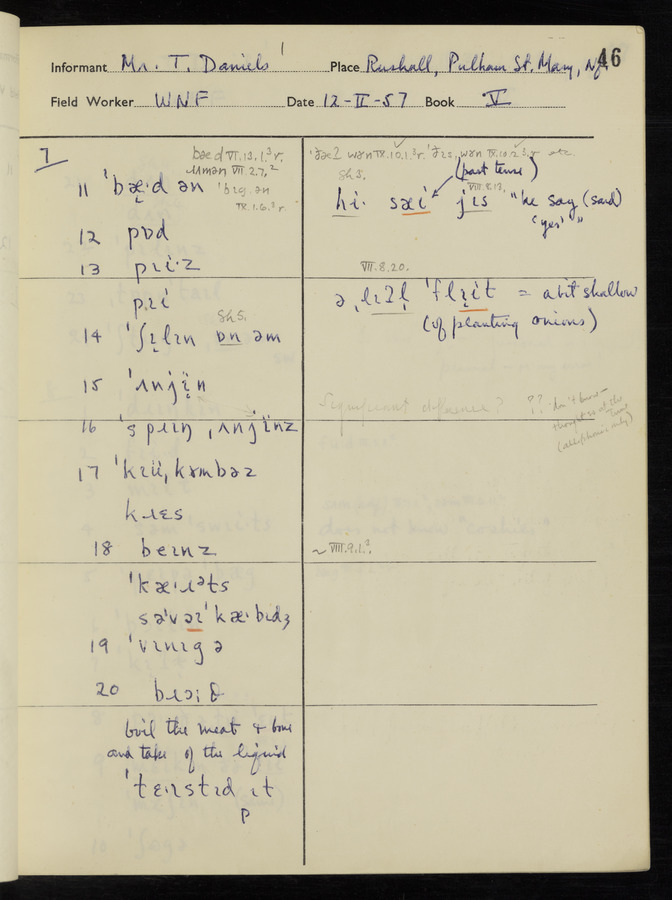 Informant Mr. T. Daniels' Place Rushall, Pulham St. Mary, Nf. 46
Field Worker WNF Date 12-II-57 Book V
7
bæd VI.13.1.³r.
ɹɩmən VII.2.7.²
11 ˈbæ̝·d ən ˈbɩg ən
IX.1.6.³r
12 pɒd
13 pɹi·z
pɹi
Sh5.
14 ˈʃɩ̞lɩn ɒn əm
15 ˈʌnjɪ̈n
16 ˈspɹɩŋ ˌʌnjɪ̈nz
17 ˈkɪüˌkɤmbəz
kɹɛs
18 beɩnz
ˈkæ·ɹəts
səˈvɔɪˈkæ·bɩdʒ
19 ˈvɩnɩgə
20 bɹɔɩ
boil the meat & bone
and take of the liquid
ˈtɛɩstɩd ɩt
p
ˈðæʔ wən IX.10.1.³r. ˈðɩs wən IX.10.2.³r etc.
Sh5.
(past tense)
VIII.8.13.
hi· sæi jɩs "he say (said)
'yes'"
VII.8.20.
ə ˌlɩʔl̩ ˈflɩ̞it = a bit shallow
(of planting onions)
Significant difference? ?? don't know –
thought so at the
time
(allophonic only)
~ VIII.9.1.²